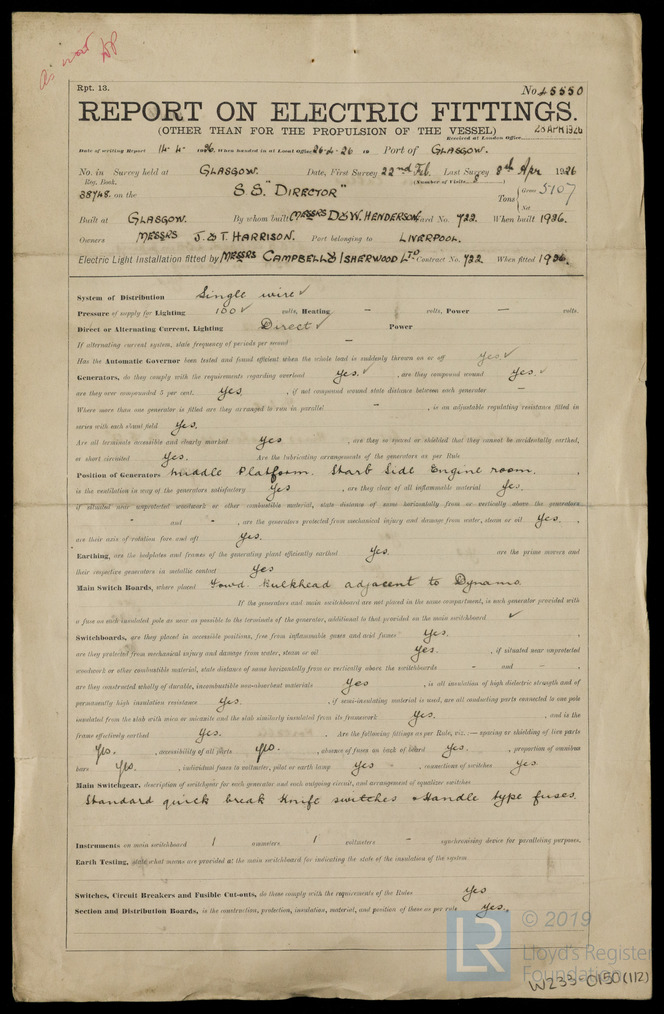 as wow
Rpt. 13.
No. 45550
REPORT ON ELECTRIC FITTINGS.
(OTHER THAN FOR THE PROPULSION OF THE VESSEL)
Received at London Office 28 APR 1926
Date of writing Report 14-4- 1926. When handed in at Local Office 26-4-26 19 Port of GLASGOW.
No. in Survey held at GLASGOW. Date, First Survey 22nd Feb. Last Survey 8th Apr 1926
Reg. Book. (Number of Visits 5)
38748. on the S.S "DIRECTOR" Tons { Gross 5107
Net
Built at GLASGOW. By whom built MESSRS D & W. HENDERSON. Yard No. 722. When built 1926.
Owners MESSRS J. & T. HARRISON. Port belonging to LIVERPOOL.
Electric Light Installation fitted by MESSRS CAMPBELL & ISHERWOOD LTD. Contract No. 722 When fitted 1926.
System of Distribution Single wire ✓
Pressure of supply for Lighting 100 ✓ volts, Heating - volts, Power - volts.
Direct or Alternating Current, Lighting Direct ✓ Power
If alternating current system, state frequency of periods per second -
Has the Automatic Governor been tested and found efficient when the whole load is suddenly thrown on or off yes ✓
Generators, do they comply with the requirements regarding overload Yes. ✓, are they compound wound yes. ✓
are they over compounded 5 per cent. yes., if not compound wound state distance between each generator -
Where more than one generator is fitted are they arranged to run in parallel -, is an adjustable regulating resistance fitted in
series with each shunt field yes.
Are all terminals accessible and clearly marked yes, are they so spaced or shielded that they cannot be accidentally earthed,
or short circuited Yes. Are the lubricating arrangements of the generators as per Rule
Position of Generators Middle Platform. Starb Side Engine room.
is the ventilation in way of the generators satisfactory Yes, are they clear of all inflammable material Yes.
if situated near unprotected woodwork or other combustible material, state distance of same horizontally from or vertically above the generators
- and -, are the generators protected from mechanical injury and damage from water, steam or oil Yes.
are their axis of rotation fore and aft Yes.
Earthing, are the bedplates and frames of the generating plant efficiently earthed Yes. are the prime movers and
their respective generators in metallic contact Yes
Main Switch Boards, where placed Forwd. Bulkhead adjacent to Dynamo
If the generators and main switchboard are not placed in the same compartment, is each generator provided with
a fuse on each insulated pole as near as possible to the terminals of the generator, additional to that provided on the main switchboard ✓
Switchboards, are they placed in accessible positions, free from inflammable gases and acid fumes Yes.
are they protected from mechanical injury and damage from water, steam or oil Yes., if situated near unprotected
woodwork or other combustible material, state distance of same horizontally from or vertically above the switchboards - and -
are they constructed wholly of durable, incombustible non-absorbent materials Yes, is all insulation of high dielectric strength and of
permanently high insulation resistance Yes., if semi-insulating material is used, are all conducting parts connected to one pole
insulated from the slab with mica or micanite and the slab similarly insulated from its framework Yes., and is the
frame effectively earthed Yes. Are the following fittings as per Rule, viz. :— spacing or shielding of live parts
Yes., accessibility of all parts yes., absence of fuses on back of board Yes., proportion of omnibus
bars Yes., individual fuses to voltmeter, pilot or earth lamp Yes, connections of switches Yes
Main Switchgear, description of switchgear for each generator and each outgoing circuit, and arrangement of equalizer switches
Standard quick break Knife switches & Handle type fuses.
Instruments on main switchboard 1 ammeters 1 voltmeters - synchronising device for paralleling purposes.
Earth Testing, state what means are provided at the main switchboard for indicating the state of the insulation of the system
Switches, Circuit Breakers and Fusible Cut-outs, do these comply with the requirements of the Rules Yes
Section and Distribution Boards, is the construction, protection, insulation, material, and position of these as per rule Yes.
LR © 2019
Lloyd's Register
Foundation
W233-0150 (1/2)